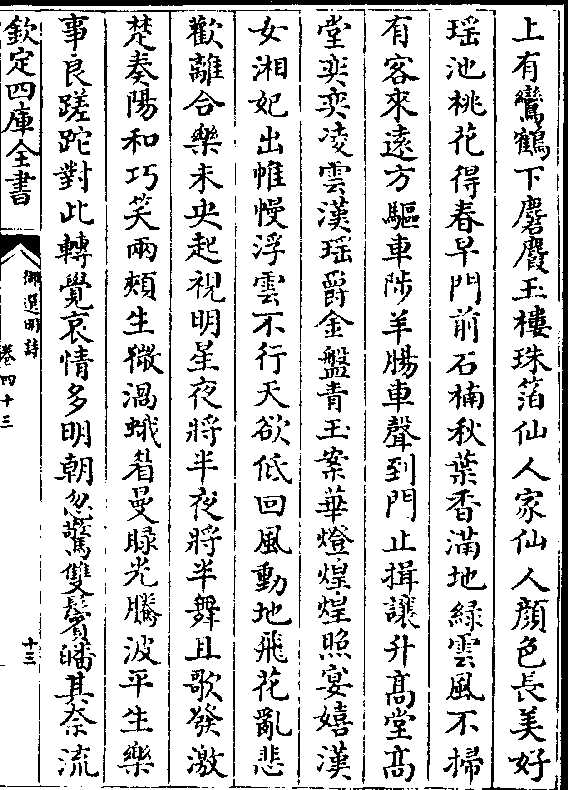 上有鸞鶴下麏麚玉樓珠箔仙人家仙人顔色長美好
瑶池桃花得春早門前石楠秋葉香滿地緑雲風不掃
有客來逺方驅車陟羊腸車聲到門止揖讓升髙堂髙
堂奕奕凌雲漢瑶爵金盤青玉案華燈煌煌照宴嬉漢
女湘妃出帷幔浮雲不行天欲低回風動地飛花亂悲
歡離合樂未央起視明星夜將半夜將半舞且歌發激
楚奏陽和巧笑兩頰生微渦蛾眉曼睩光騰波平生樂
事良蹉跎對此轉覺哀情多明朝忽驚雙鬢皤其奈流
欽定四庫全書
御選明詩
卷四十三
十三